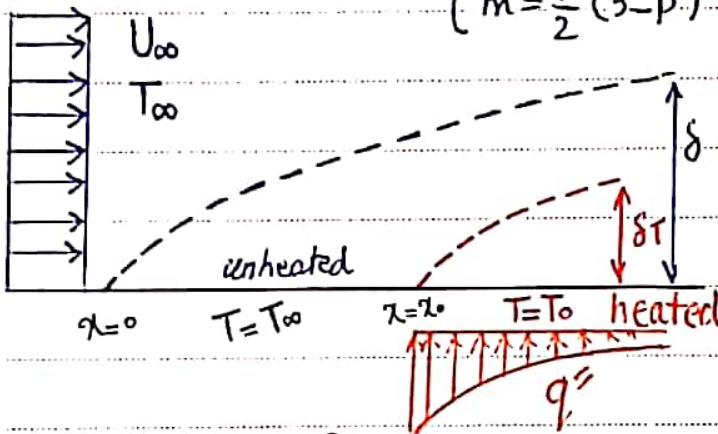 ( m = 1/2 (3-β)
U∞
T∞
δ
unheated
δT
x=0
T=T∞
x=x₀
T=T₀
heated
q"